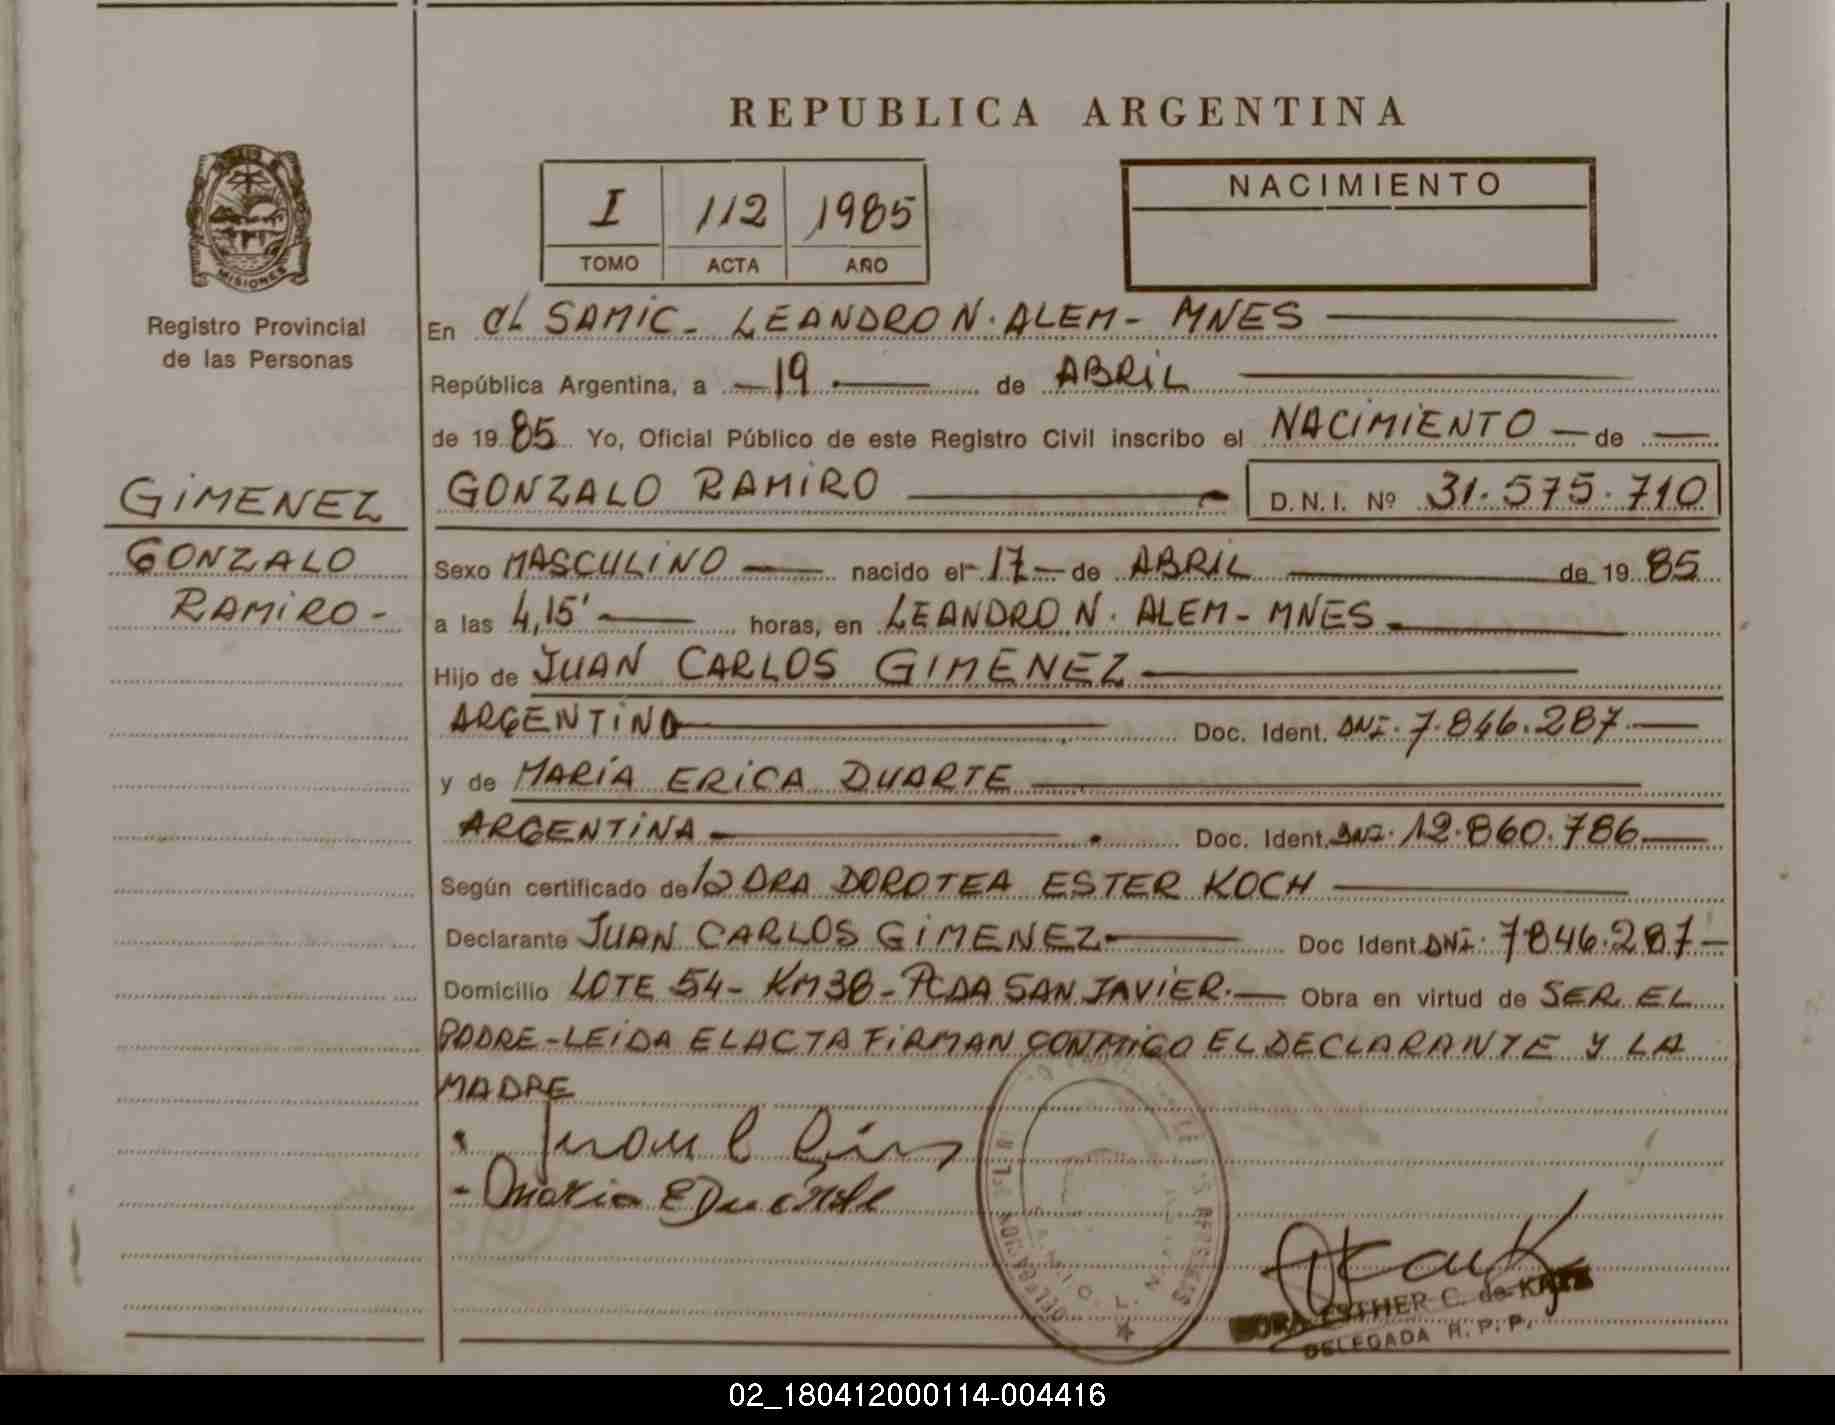 REPUBLICA ARGENTINA
I 112 1985
TOMO ACTA AÑO
NACIMIENTO
MISIONES
Registro Provincial
de las Personas
GIMENEZ
GONZALO
RAMIRO-
En el SAMIC- LEANDRO N. ALEM- MNES
República Argentina, a 19 de ABRIL
de 1985 Yo, Oficial Público de este Registro Civil inscribo el NACIMIENTO de
GONZALO RAMIRO D.N.I. Nº 31.575.710
Sexo MASCULINO nacido el 17 de ABRIL de 1985
a las 4,15' horas, en LEANDRO N. ALEM- MNES
Hijo de JUAN CARLOS GIMENEZ
ARGENTINO Doc. Ident. DNI. 7.846.287
y de MARÍA ERICA DUARTE
ARGENTINA Doc. Ident. DNI. 12.860.786
Según certificado de la DRA DOROTEA ESTER KOCH
Declarante JUAN CARLOS GIMENEZ Doc Ident. DNI: 7846.287
Domicilio LOTE 54- KM38- PCDA SAN JAVIER. Obra en virtud de SER EL
PADRE-LEIDA EL ACTA FIRMAN CONMIGO EL DECLARANTE Y LA
MADRE
Juan C
Maria E Duarte
ESTHER C. de KATZ
DELEGADA R.P.P.
02_180412000114-004416